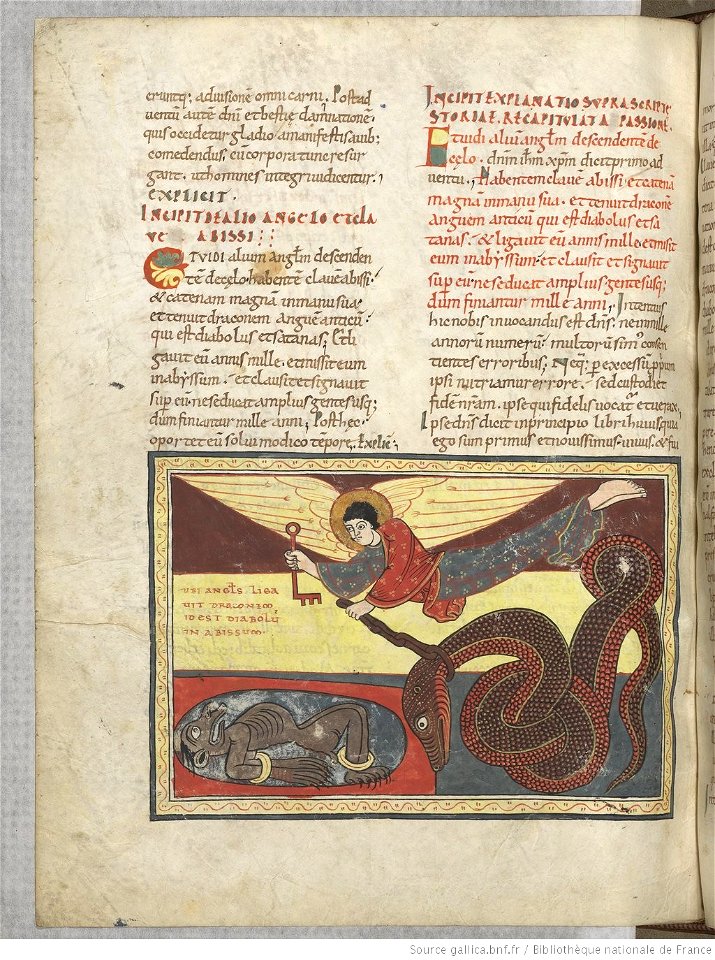 eruntq; ad visionē omni carni. Post ad
ventū autē dn̄i et bestiȩ damnationē.
qui occidetur gladio a manifestis avib;
comedendus, cū corpora tune resur
gant. ut homines integri iudicentur.
EXPLICIT.
INCIPIT ITALIO ANGELO ET CLA
VE ABISSI
ET VIDI alium anglm̄ descenden
tē de celo habentē clavē abissi
& catenam magnā in manu sua
et tenuit draconem anguē anticū
qui est diabolus et satanas. Et li
gavit eū annis mille. et misit eum
in abyssum. et clausit et signavit
sup eū ne seducat amplius gentes usq;
dum finiantur mille anni. Post hec
oportet eū solui modico tēpore. Explic̄
INCIPIT EXPLANATIO SUPRASCRIPTE
STORIAE. RECAPITULAT A PASSIONE.
ET vidi aliū anglm̄ descendente de
cȩlo. dnm̄ ihm̄ xp̄m dicit primo ad
ventu. Habentem clavē abissi et catenā
magna in manu sua. et tenuit draconē
anguem anticū qui est diabolus et sa
tanas. & ligavit eū annis mille et misit
eum in abyssum. et clausit et signavit
sup eum ne seducat amplius gentes usq;
dum finiantur mille anni. Intentius
hic nobis invocandus est dn̄s. ne in mille
annorū numerū multorū sim' consen
tientes erroribus. Neq; p excessū pprium
ipsi nutriamur errore. sed custodiet
fidē nr̄am. ipse qui fidelis vocat' et verax.
Ipse dn̄s dicit in principio libri huius quia
ego sum primus et novissimus. vivus. & fui
UBI ANGLS LIGA
VIT DRACONEM
ID EST DIABOLU
IN ABISSUM
Source gallica.bnf.fr / Bibliothèque nationale de France